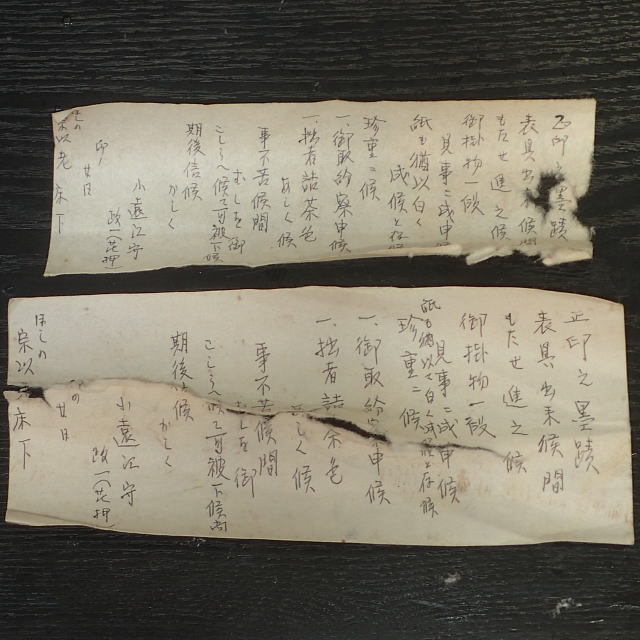 正印之墨蹟
表具出来候間
もたせ進之候
御掛物一段
見事ニ成申候
紙も猶以白く
成候と存候
珍重ニ候
一、御取紛察申候
一、拙者詰茶色
あしく候
事不苦候間
むしを御
こしらへ候て可被下候
期後信候
かしく
小遠江守
政一(花押)
卯 廿日
ほしの
宗以老 床下
正印之墨蹟
表具出来候間
もたせ進之候
御掛物一段
見事ニ成申候
紙も猶以て白く成候と存候
珍重ニ候
一、御取紛 申候
一、拙者詰茶色
しく候
事不苦候間
しを御
こしらへ 可被下候
期後 候
かしく
小遠江守
政一(花押)
廿日
ほしの
宗以 床下